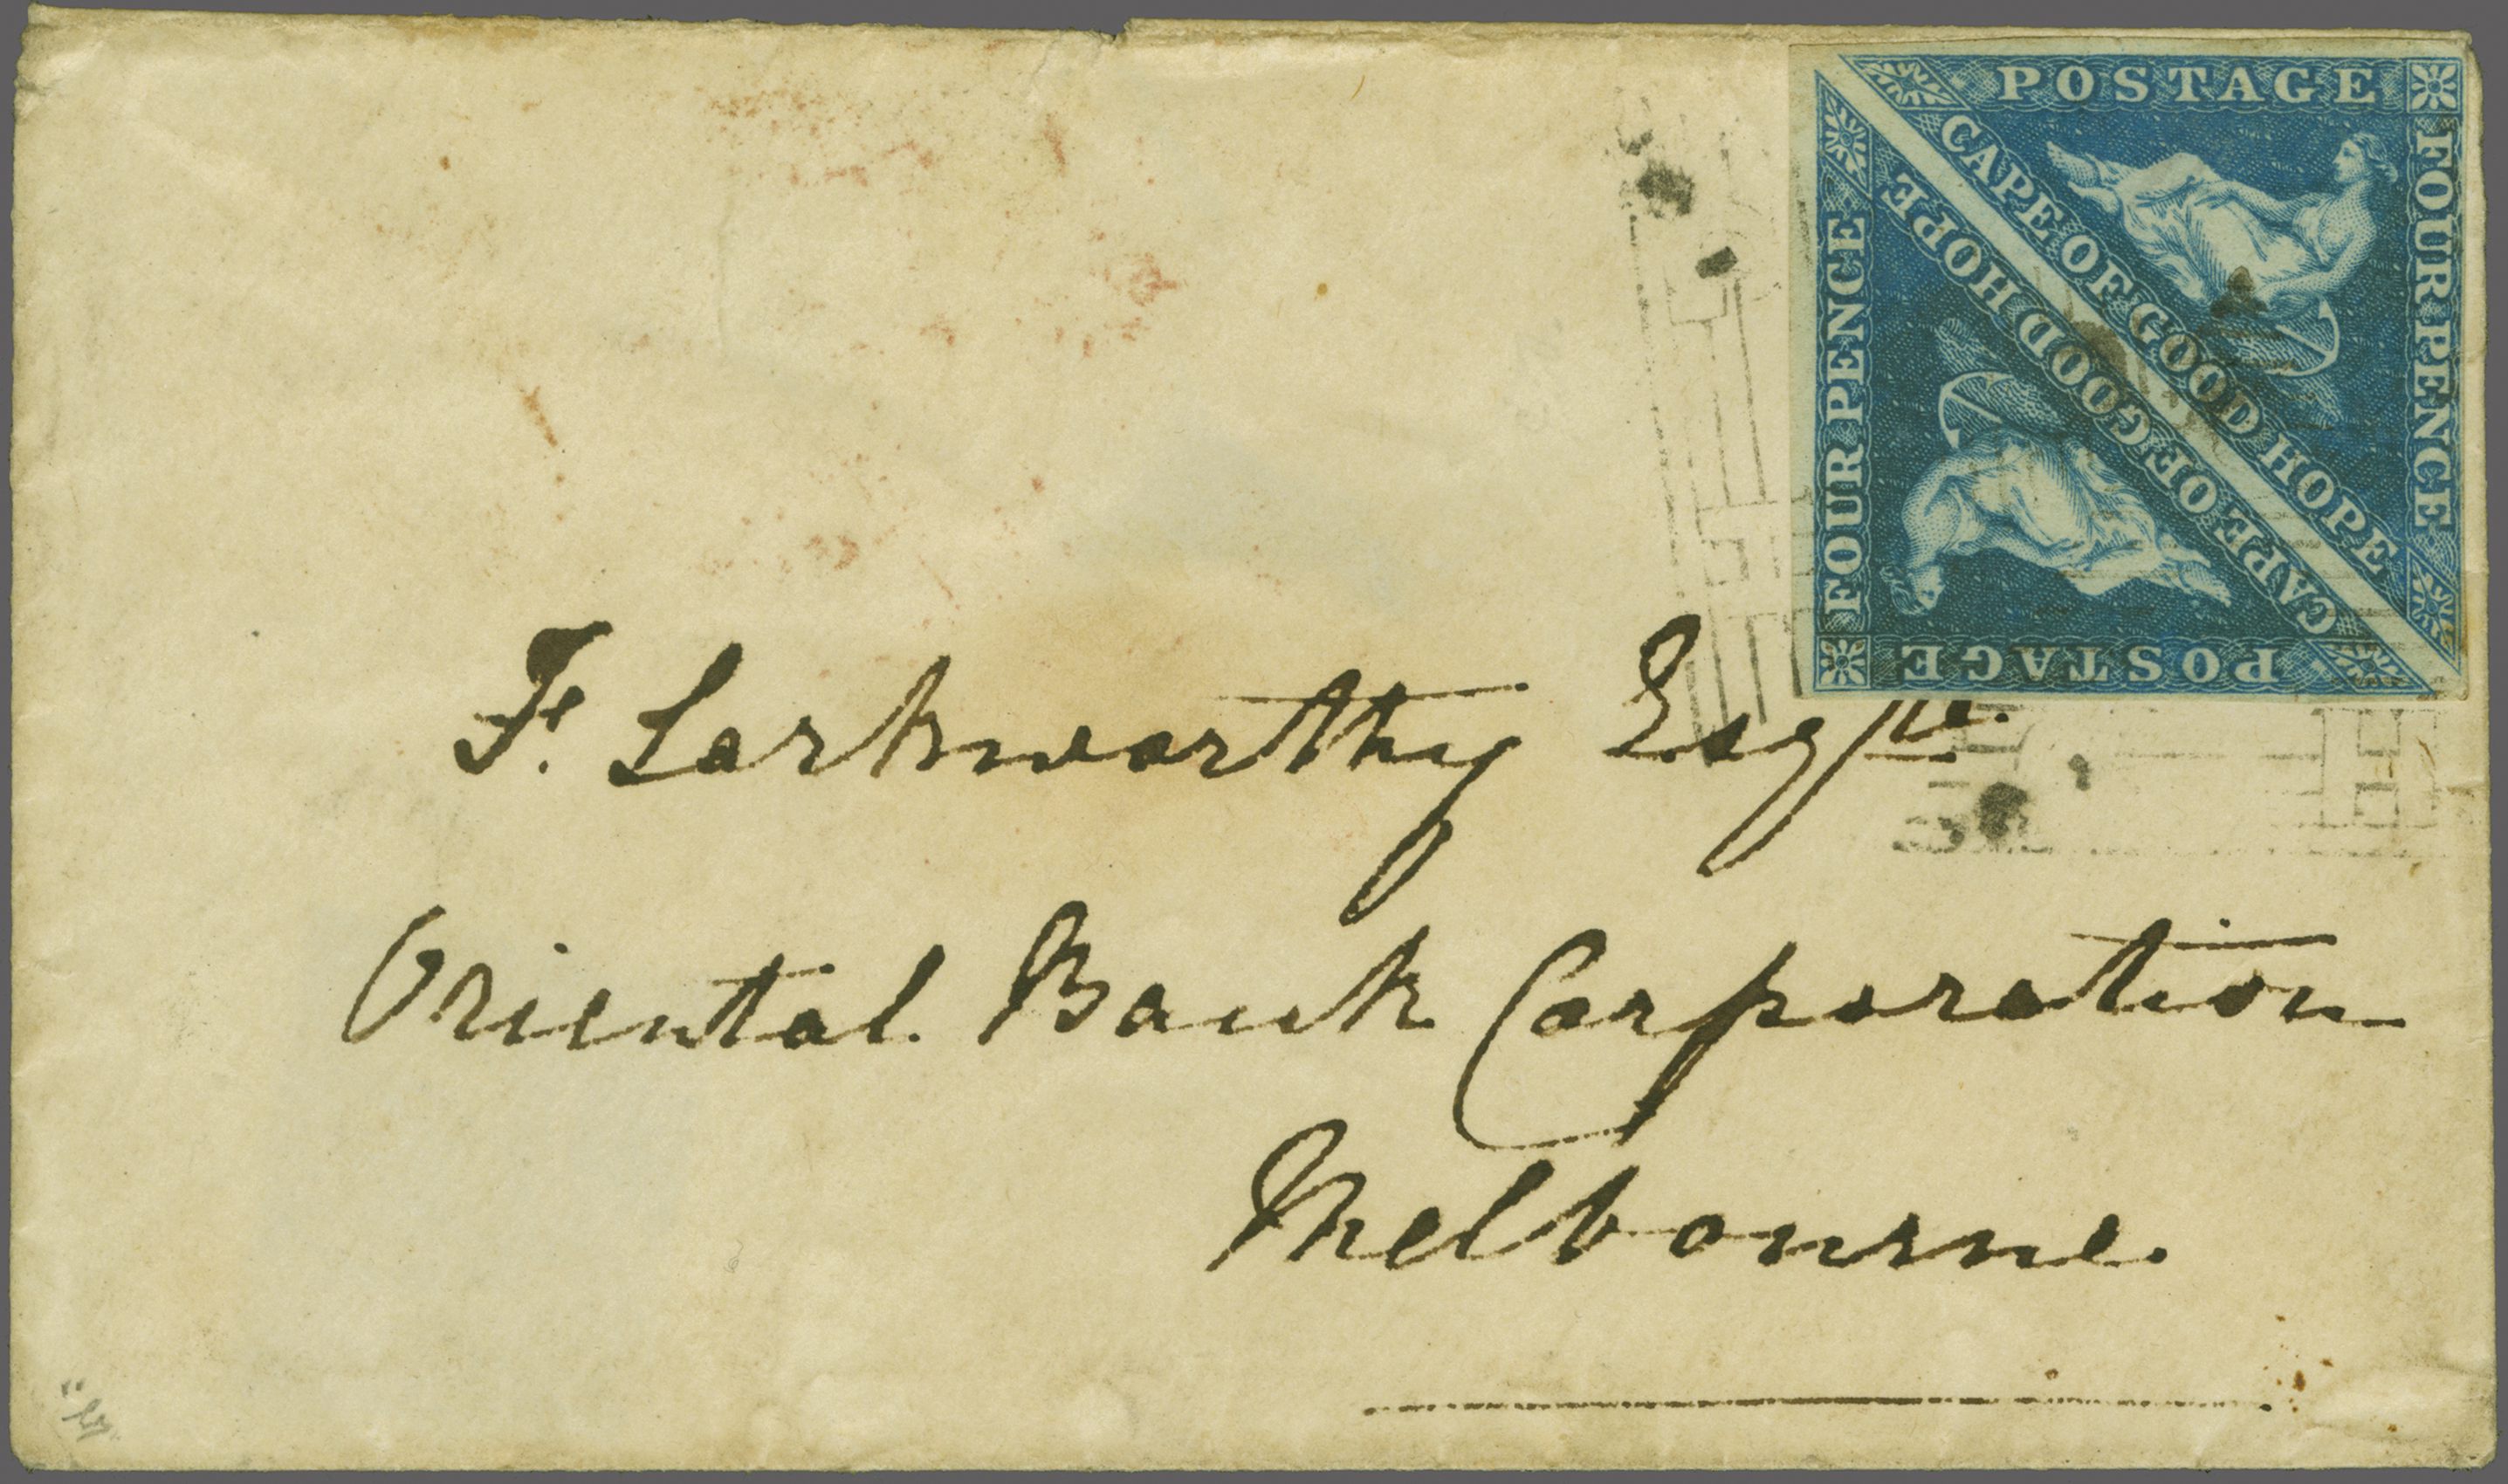 POSTAGE
FOUR PENCE
CAPE OF GOOD HOPE
CAPE OF GOOD HOPE
FOUR PENCE
POSTAGE
F. Larkworthy Esqre.
Oriental Bank Corporation
Melbourne.